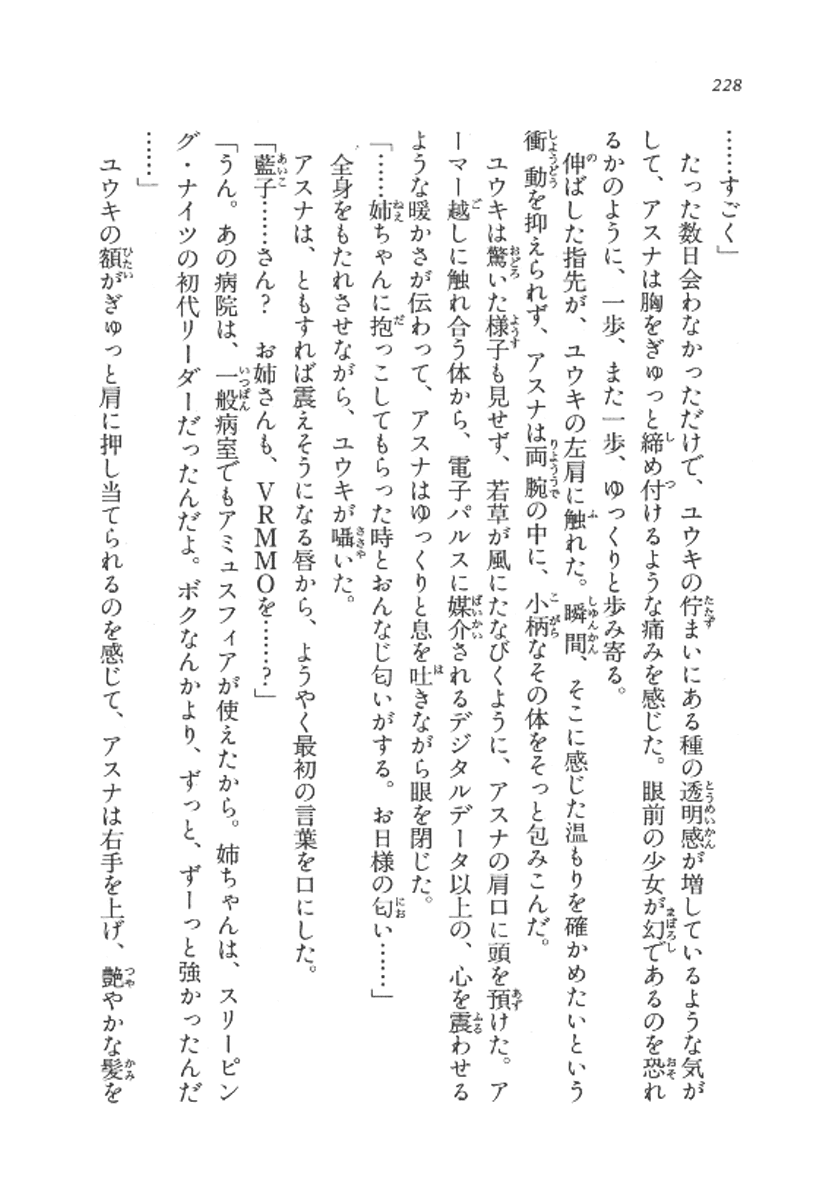 228
……すごく」
　たった数日会わなかっただけで、ユウキの佇まいにある種の透明感が増しているような気が
して、アスナは胸をぎゅっと締め付けるような痛みを感じた。眼前の少女が幻であるのを恐れ
るかのように、一歩、また一歩、ゆっくりと歩み寄る。
　伸ばした指先が、ユウキの左肩に触れた。瞬間、そこに感じた温もりを確かめたいという
衝動を抑えられず、アスナは両腕の中に、小柄なその体をそっと包みこんだ。
　ユウキは驚いた様子も見せず、若草が風にたなびくように、アスナの肩口に頭を預けた。ア
ーマー越しに触れ合う体から、電子パルスに媒介されるデジタルデータ以上の、心を震わせる
ような暖かさが伝わって、アスナはゆっくりと息を吐きながら眼を閉じた。
「……姉ちゃんに抱っこしてもらった時とおんなじ匂いがする。お日様の匂い……」
　全身をもたれさせながら、ユウキが囁いた。
　アスナは、ともすれば震えそうになる唇から、ようやく最初の言葉を口にした。
「藍子……さん？　お姉さんも、ＶＲＭＭＯを……？」
「うん。あの病院は、一般病室でもアミュスフィアが使えたから。姉ちゃんは、スリーピン
グ・ナイツの初代リーダーだったんだよ。ボクなんかより、ずっと、ずーっと強かったんだ
……」
　ユウキの額がぎゅっと肩に押し当てられるのを感じて、アスナは右手を上げ、艶やかな髪を